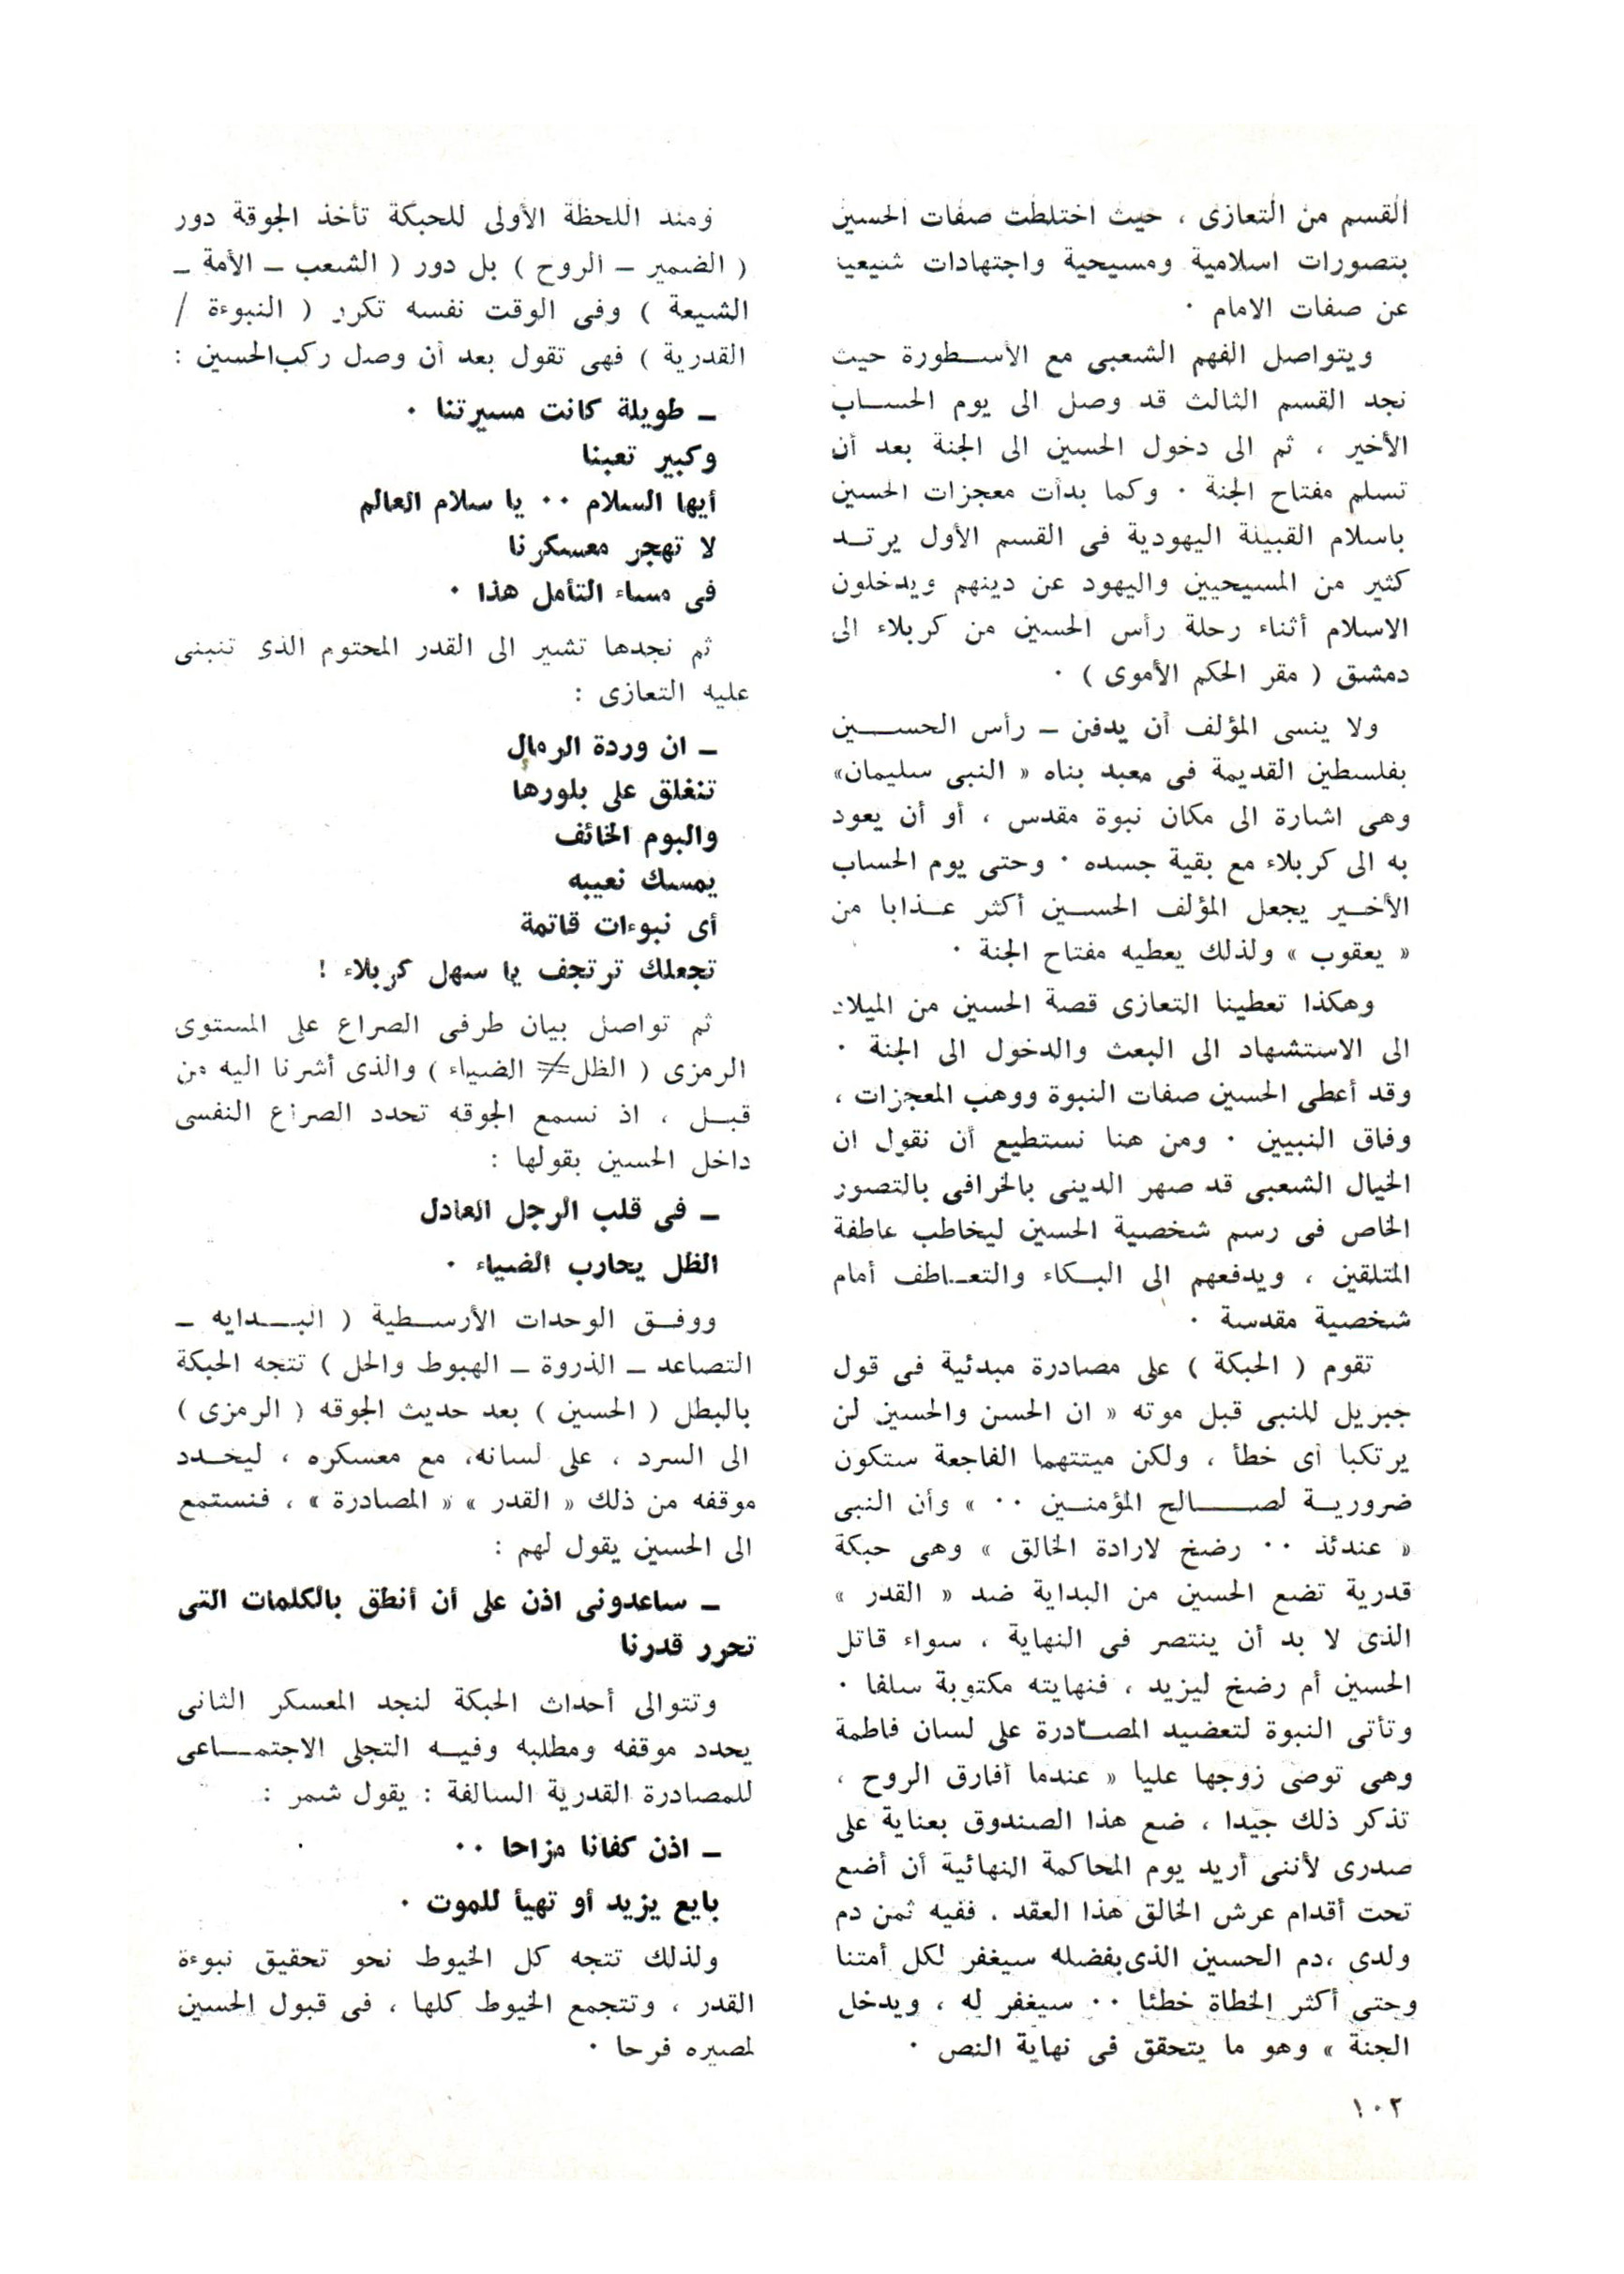 القسم من التعازى ، حيث اختلطت صفات الحسين
بتصورات اسلامية ومسيحية واجتهادات شيعية
عن صفات الامام ٠
ويتواصل الفهم الشعبى مع الأســطورة حيث
نجد القسم الثالث قد وصل الى يوم الحســاب
الأخير ، ثم الى دخول الحسين الى الجنة بعد أن
تسلم مفتاح الجنة ٠ وكما بدأت معجزات الحسين
باسلام القبيلة اليهودية فى القسم الأول يرتــد
كثير من المسيحيين واليهود عن دينهم ويدخلون
الاسلام أثناء رحلة رأس الحسين من كربلاء الى
دمشق ( مقر الحكم الأموى ) ٠
ولا ينسى المؤلف أن يدفن ــ رأس الحســـين
بفلسطين القديمة فى معبد بناه « النبى سليمان»
وهى اشارة الى مكان نبوة مقدس ، أو أن يعود
به الى كربلاء مع بقية جسده ٠ وحتى يوم الحساب
الأخــير يجعل المؤلف الحســين أكثر عــذابا من
« يعقوب » ولذلك يعطيه مفتاح الجنة ٠
وهكذا تعطينا التعازى قصة الحسين من الميلاد
الى الاستشهاد الى البعث والدخول الى الجنة ٠
وقد أعطى الحسين صفات النبوة ووهب المعجزات ،
وفاق النبيين ٠ ومن هنا نستطيع أن نقول ان
الخيال الشعبى قد صهر الدينى بالخرافى بالتصور
الخاص فى رسم شخصية الحسين ليخاطب عاطفة
المتلقين ، ويدفعهم الى البــكاء والتعــاطف أمام
شخصية مقدسة ٠
تقوم ( الحبكة ) على مصادرة مبدئية فى قول
جبريل للنبى قبل موته « ان الحسن والحسين لن
يرتكبا أى خطأ ، ولكن ميتتهما الفاجعة ستكون
ضروريــة لصـــالح المؤمنــين ٠٠ » وأن النبى
« عندئذ ٠٠ رضخ لارادة الخالق » وهى حبكة
قدرية تضع الحسين من البداية ضد « القدر »
الذى لا بد أن ينتصر فى النهاية ، سواء قاتل
الحسين أم رضخ ليزيد ، فنهايته مكتوبة سلفا ٠
وتأتى النبوة لتعضيد المصــادرة على لسان فاطمة
وهى توصى زوجها عليا « عندما أفارق الروح ،
تذكر ذلك جيدا ، ضع هذا الصندوق بعناية على
صدرى لأننى أريد يوم المحاكمة النهائية أن أضع
تحت أقدام عرش الخالق هذا العقد . ففيه ثمن دم
ولدى ،دم الحسين الذى بفضله سيغفر لكل أمتنا
وحتى أكثر الخطاة خطئا ٠٠ سيغفر له ، ويدخل
الجنة » وهو ما يتحقق فى نهاية النص ٠
ومند اللحظة الأولى للحبكة تأخذ الجوقة دور
( الضمير ــ الروح ) بل دور ( الشعب ــ الأمة ــ
الشيعة ) وفى الوقت نفسه تكرر ( النبوءة /
القدرية ) فهى تقول بعد أن وصل ركب الحسين :
ــ طويلة كانت مسيرتنا ٠
وكبير تعبنا
أيها السلام ٠٠ يا سلام العالم
لا تهجر معسكرنا
فى مساء التأمل هذا ٠
ثم نجدها تشير الى القدر المحتوم الذى تنبنى
عليه التعازى :
ــ ان وردة الرمال
تنغلق على بلورها
والبوم الخائف
يمسك نعيبه
أى نبوءات قاتمة
تجعلك ترتجف يا سهل كربلاء !
ثم تواصل بيان طرفى الصراع على المستوى
الرمزى ( الظل ≠ الضياء ) والذى أشرنا اليه من
قبــل ، اذ نسمع الجوقه تحدد الصراع النفسى
داخل الحسين بقولها :
ــ فى قلب الرجل العادل
الظل يحارب الضياء ٠
ووفــق الوحدات الأرســطية ( البـــدايه ــ
التصاعد ــ الذروة ــ الهبوط والحل ) تتجه الحبكة
بالبطل ( الحسين ) بعد حديث الجوقه ( الرمزى )
الى السرد ، على لسانه، مع معسكره ، ليحــدد
موقفه من ذلك « القدر » « المصادرة » ، فنستمع
الى الحسين يقول لهم :
ــ ساعدونى اذن على أن أنطق بالكلمات التى
تحرر قدرنا
وتتوالى أحداث الحبكة لنجد المعسكر الثانى
يحدد موقفه ومطلبه وفيــه التجلى الاجتمــاعى
للمصادرة القدرية السالفة : يقول شمر :
ــ اذن كفانا مزاحا ٠٠
بايع يزيد أو تهيأ للموت ٠
ولذلك تتجه كل الخيوط نحو تحقيق نبوءة
القدر ، وتتجمع الخيوط كلها ، فى قبول الحسين
لمصيره فرحا ٠
١٠٢